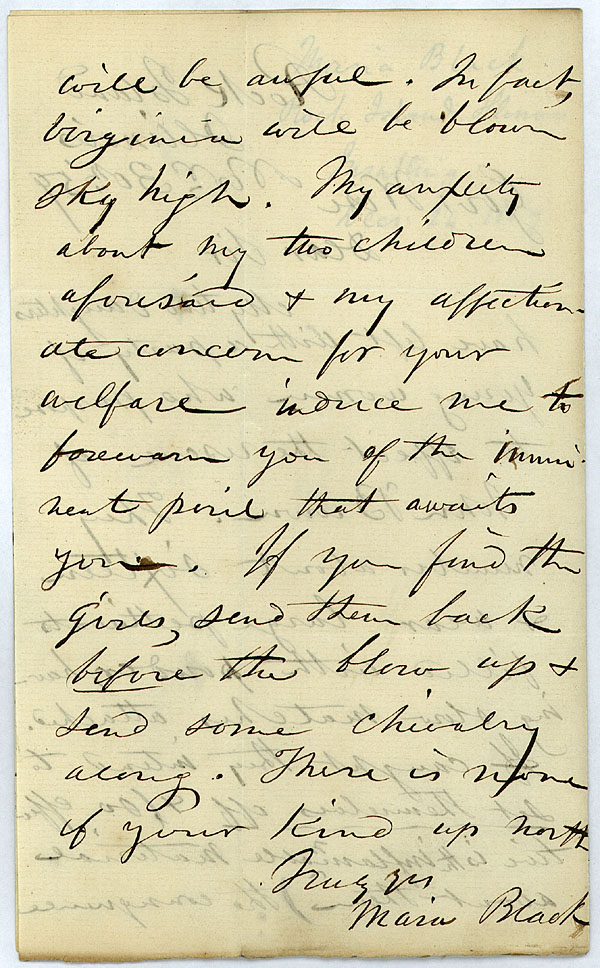 will be awful. In fact,
Virginia will be blown
sky high. My anxiety
about my two children
aforesaid & my affection-
ate concern for your
welfare induce me to
forewarn you of the immi-
nent peril that awaits
you. If you find the
girls, send them back
before the blow up &
send some chivalry
along. There is none
of your kind up north
Truly yrs
Maria Black